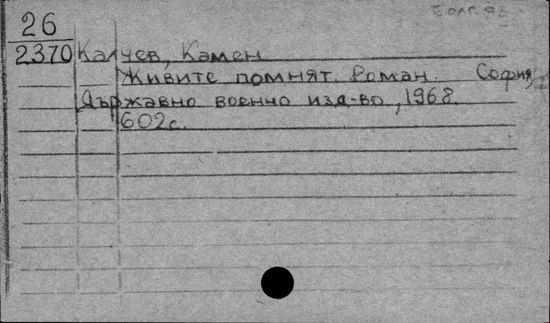 Болг. яз
26
2370 Калчев, Камен
Живите помнят. Роман. София,
Държавно военно изд-во, 1968.
602с.